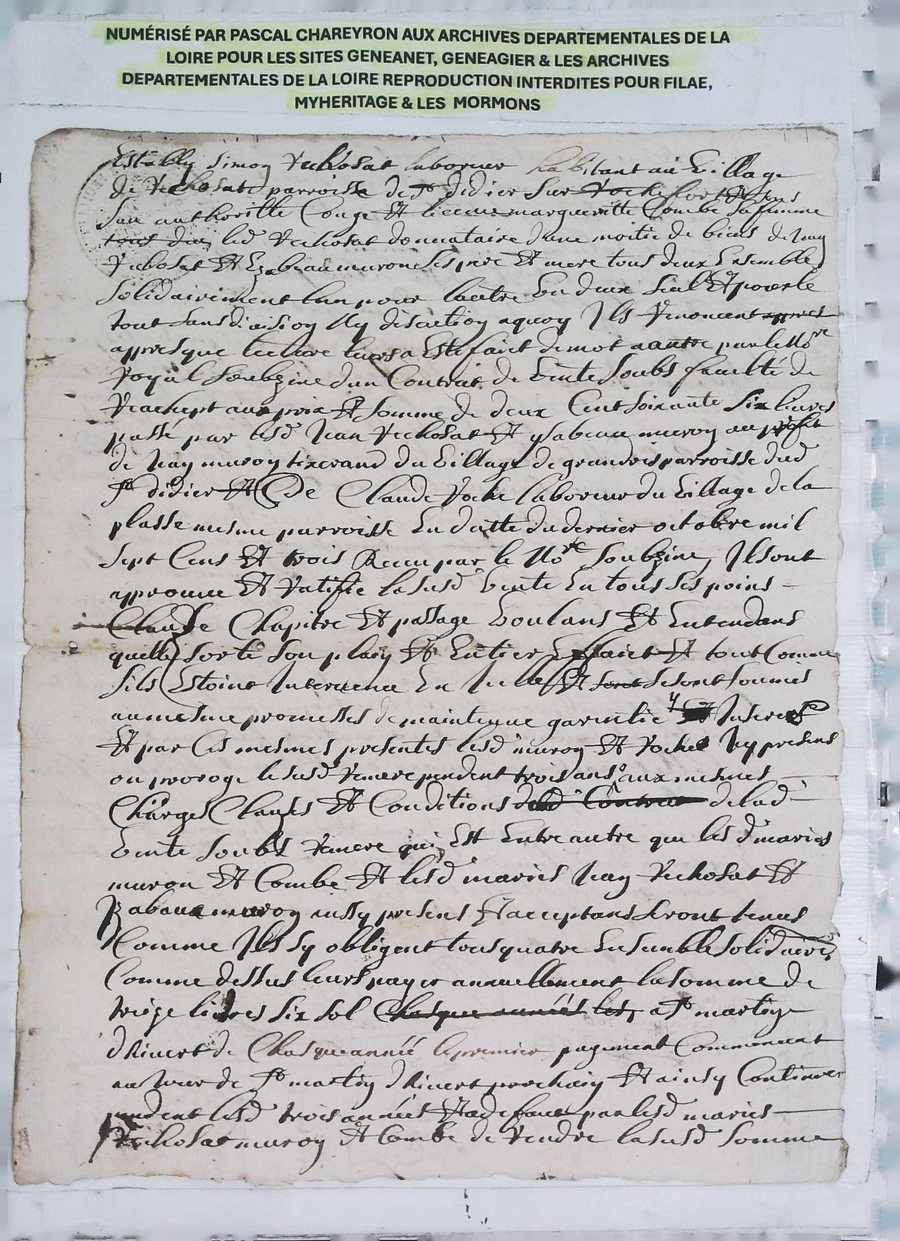 NUMÉRISÉ PAR PASCAL CHAREYRON AUX ARCHIVES DEPARTEMENTALES DE LA
LOIRE POUR LES SITES GENEANET, GENEAGIER & LES ARCHIVES
DEPARTEMENTALES DE LA LOIRE REPRODUCTION INTERDITES POUR FILAE,
MYHERITAGE & LES MORMONS
Estably Simon Vechosat laboureur habitant au Village
de Vechosat parroisse de St didier sur
son authoritte Conge Et licence margueritte Combe sa femme
led Vechosat donnataire dune moitie de biens de Jean
Vechosat Et Ezabeau muron ses pere Et mere tous deux Ensemble
Solidairement lun pour lautre Un deux seul Et pour le
tout sans division Ny discution aquoy Ils Renoncent appres
appres que lecture leurs a Esté faict de mot a autre par le No.re
Royal Soubzine dun Contrat de Vente Soubs faculté de
Reachept au prix Et Somme de deux Cent soixante Six livres
passé par lesd Jean Vechosat Et ysabeau muron au proffit
de Jean muron tixerand du Village de grandris parroisse dud
St didier Et De Claude Roche laboureur du Village de la
plasse mesme parroisse En datte du dernier octobre mil
Sept Cens Et trois Receu par le No.re Soubzine, Ils ont
approuve Et Ratiffie la susd Vente En tous ses poins
Clause Chapitre Et passage Voulans Et Entendans
quelle sorte son plain Et Entier Effaict Et tout Comme
sils Estoint Intervenu En Icelle Et se sont soumes
au mesme promesses de maintenue garentie y Inseres
Et par Ces mesmes presentes lesd muron Et Roche Icy presens
on proroge le susd Remere pendent trois ans aux mesmes
Charges Clauses Et Conditions de lad
Vente Soubs Remere qui Est Entre autre que lesd maries
muron Et Combe Et lesd maries Jean Vechosat Et
Izabeau muron aussy presens Et acceptans seront tenus
Comme Ils sy obligent tous quatre Ensemble solidaires
Comme dessus leurs payer annuellement la somme de
treize livres Six sol Chasque années les, a St martin
dhivert de Chasque année le premier payement Commencent
au Jour de St martin dhivert prochain Et ainsy Continuer
pendent lesd trois années Et a defaut par lesd maries
Vechosat muron Et Combe de Rendre la susd Somme